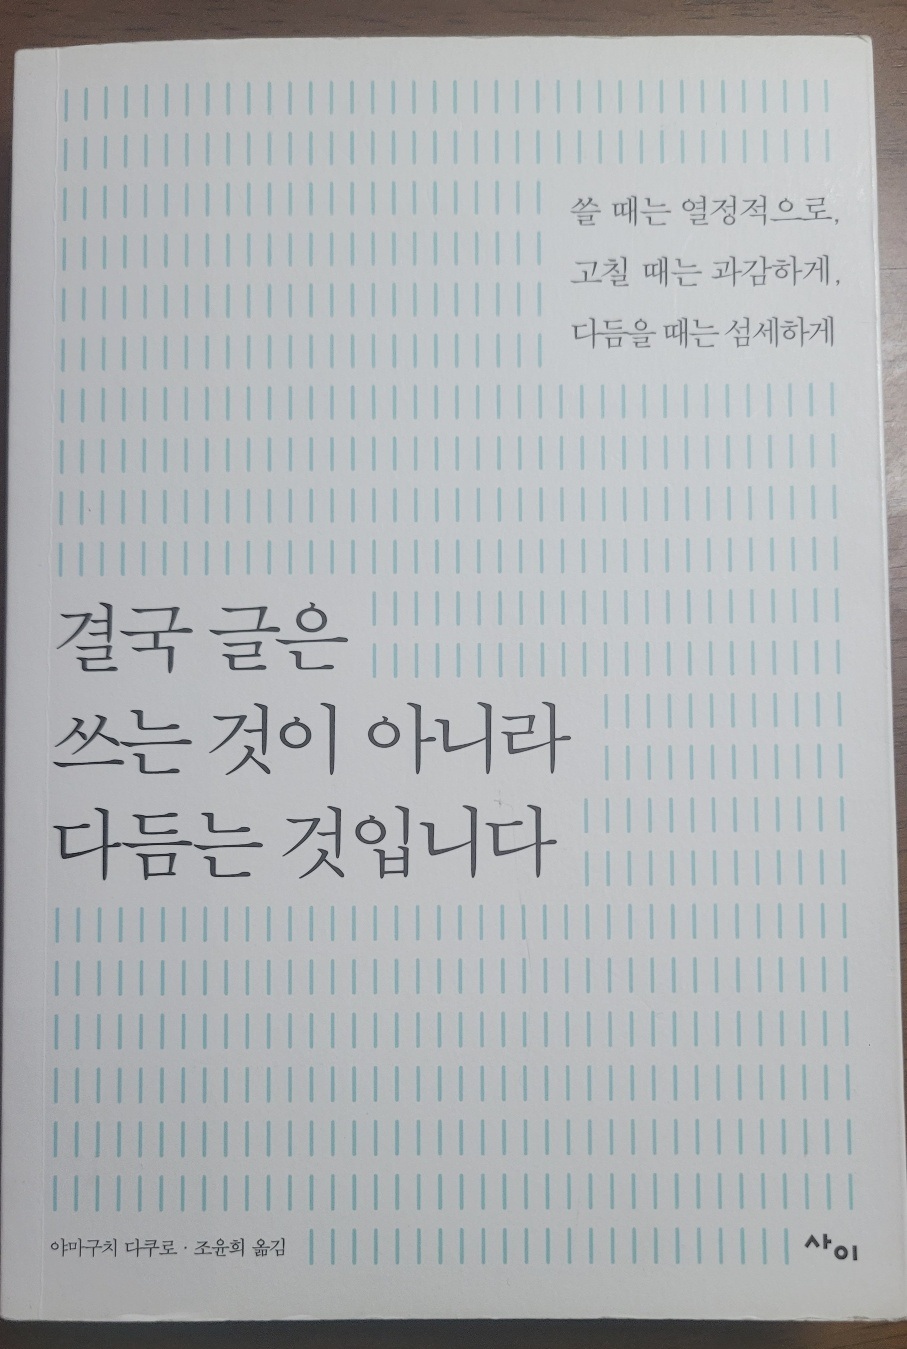 쓸 때는 열정적으로,
고칠 때는 과감하게,
다듬을 때는 섬세하게
결국 글은
쓰는 것이 아니라
다듬는 것입니다
야마구치 다쿠로 · 조윤희 옮김
사이